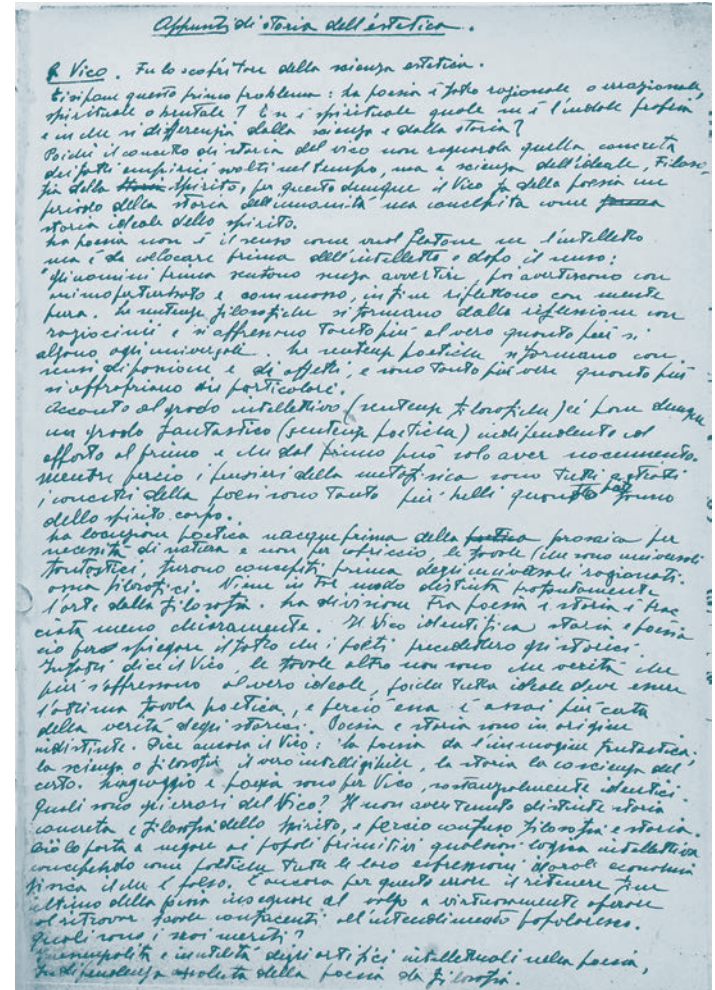 Appunti di storia dell'estetica.
G. Vico. Fu lo scopritore della scienza estetica.
Ei si pone questo primo problema: la poesia è fatto razionale o irrazionale,
spirituale o brutale? E se è spirituale quale ne è l'indole propria
e in che si differenzia dalla scienza e dalla storia?
Poiché il concetto di storia del vico non riguarda quella concreta
dei fatti empirici svolti nel tempo, ma è scienza dell'ideale, Filoso-
fia dello Spirito, per questo dunque il Vico fa della poesia un
periodo della storia dell'umanità ma concepita come
storia ideale dello spirito.
La poesia non è il senso come vuol Platone ne l'intelletto
ma è da collocare prima dell'intelletto e dopo il senso:
gli uomini prima sentono senza avvertire, poi avvertiscono con
animo perturbato e commosso, in fine riflettono con mente
pura. Le sentenze filosofiche si formano dalla riflessione con
raziocinii e si appressono tanto più al vero quanto più si
algono agli universali. Le sentenze poetiche si formano con
sensi di passioni e di affetti, e sono tanto più vere quanto più
si appropriano dei particolari.
Accanto al grado intellettivo (sentenze filosofiche) ei pone dunque
un grado fantastico (sentenze poetiche) indipendente ed
opposto al primo e che dal primo può solo aver nocumento.
Mentre perciò i pensieri della metafisica sono tutti astratti
i concetti della poesi sono tanto più belli quanto più fanno
dello spirito corpo.
La locuzione poetica nacque prima della prosaica per
necessità di natura e non per capriccio, le favole, che sono universali
fantastici, furono concepiti prima degli universali razionali
ossia filosofici. Viene in tal modo distinta profondamente
l'arte dalla filosofia. La divisione fra poesia e storia è trac
ciata meno chiaramente. Il Vico identifica storia e poesia
ciò per spiegare il fatto che i poeti precedettero gli storici.
Infatti dice il Vico, le favole altro non sono che verità che
più s'appressono al vero ideale, poiché tutta ideale deve essere
l'ottima favola poetica, e perciò essa è assai più certa
della verità degli storici. Poesia e storia sono in origine
indistinte. Dice ancora il Vico: la poesia da l'immagine fantastica,
la scienza o filosofia il vero intelligibile, la storia la coscienza del
certo. Linguaggio e poesia sono per Vico, sostanzialmente identici.
Quali sono gli errori del Vico? Il non aver tenuto distinte storia
concreta e filosofia dello spirito, e perciò confuso filosofia e storia.
Ciò lo porta a negare ai popoli primitivi qualsiasi logica intellettiva
concependo come poetiche tutte le loro espressioni morali economia
fisica il che è falso. È ancora per questo errore il ritenere fine
ultimo della poesia insegnare al volgo a virtuosamente operare
al ritrovar favole confacenti all'intendimento popolaresco.
Quali sono i suoi meriti?
e inutilità degli artifici intellettuali nella poesia,
Indipendenza assoluta della poesia da filosofia.